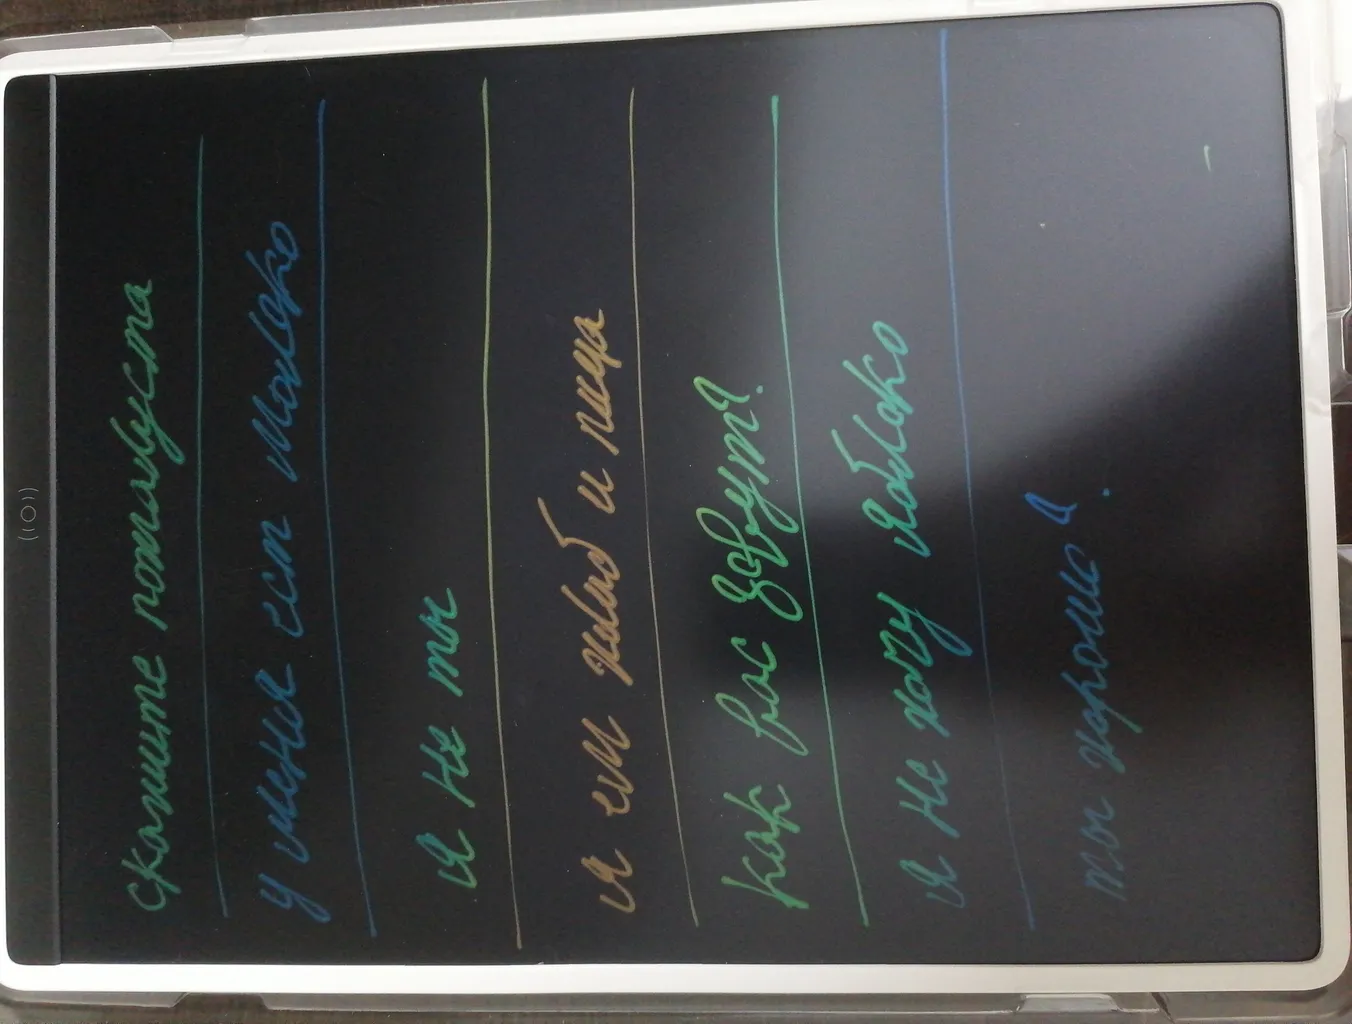 скажите пожалуста
у меня есть молоко
я не ты
я ем хлеб и пица
как вас зовут?
я не хочу яблоко
ты хорошо?